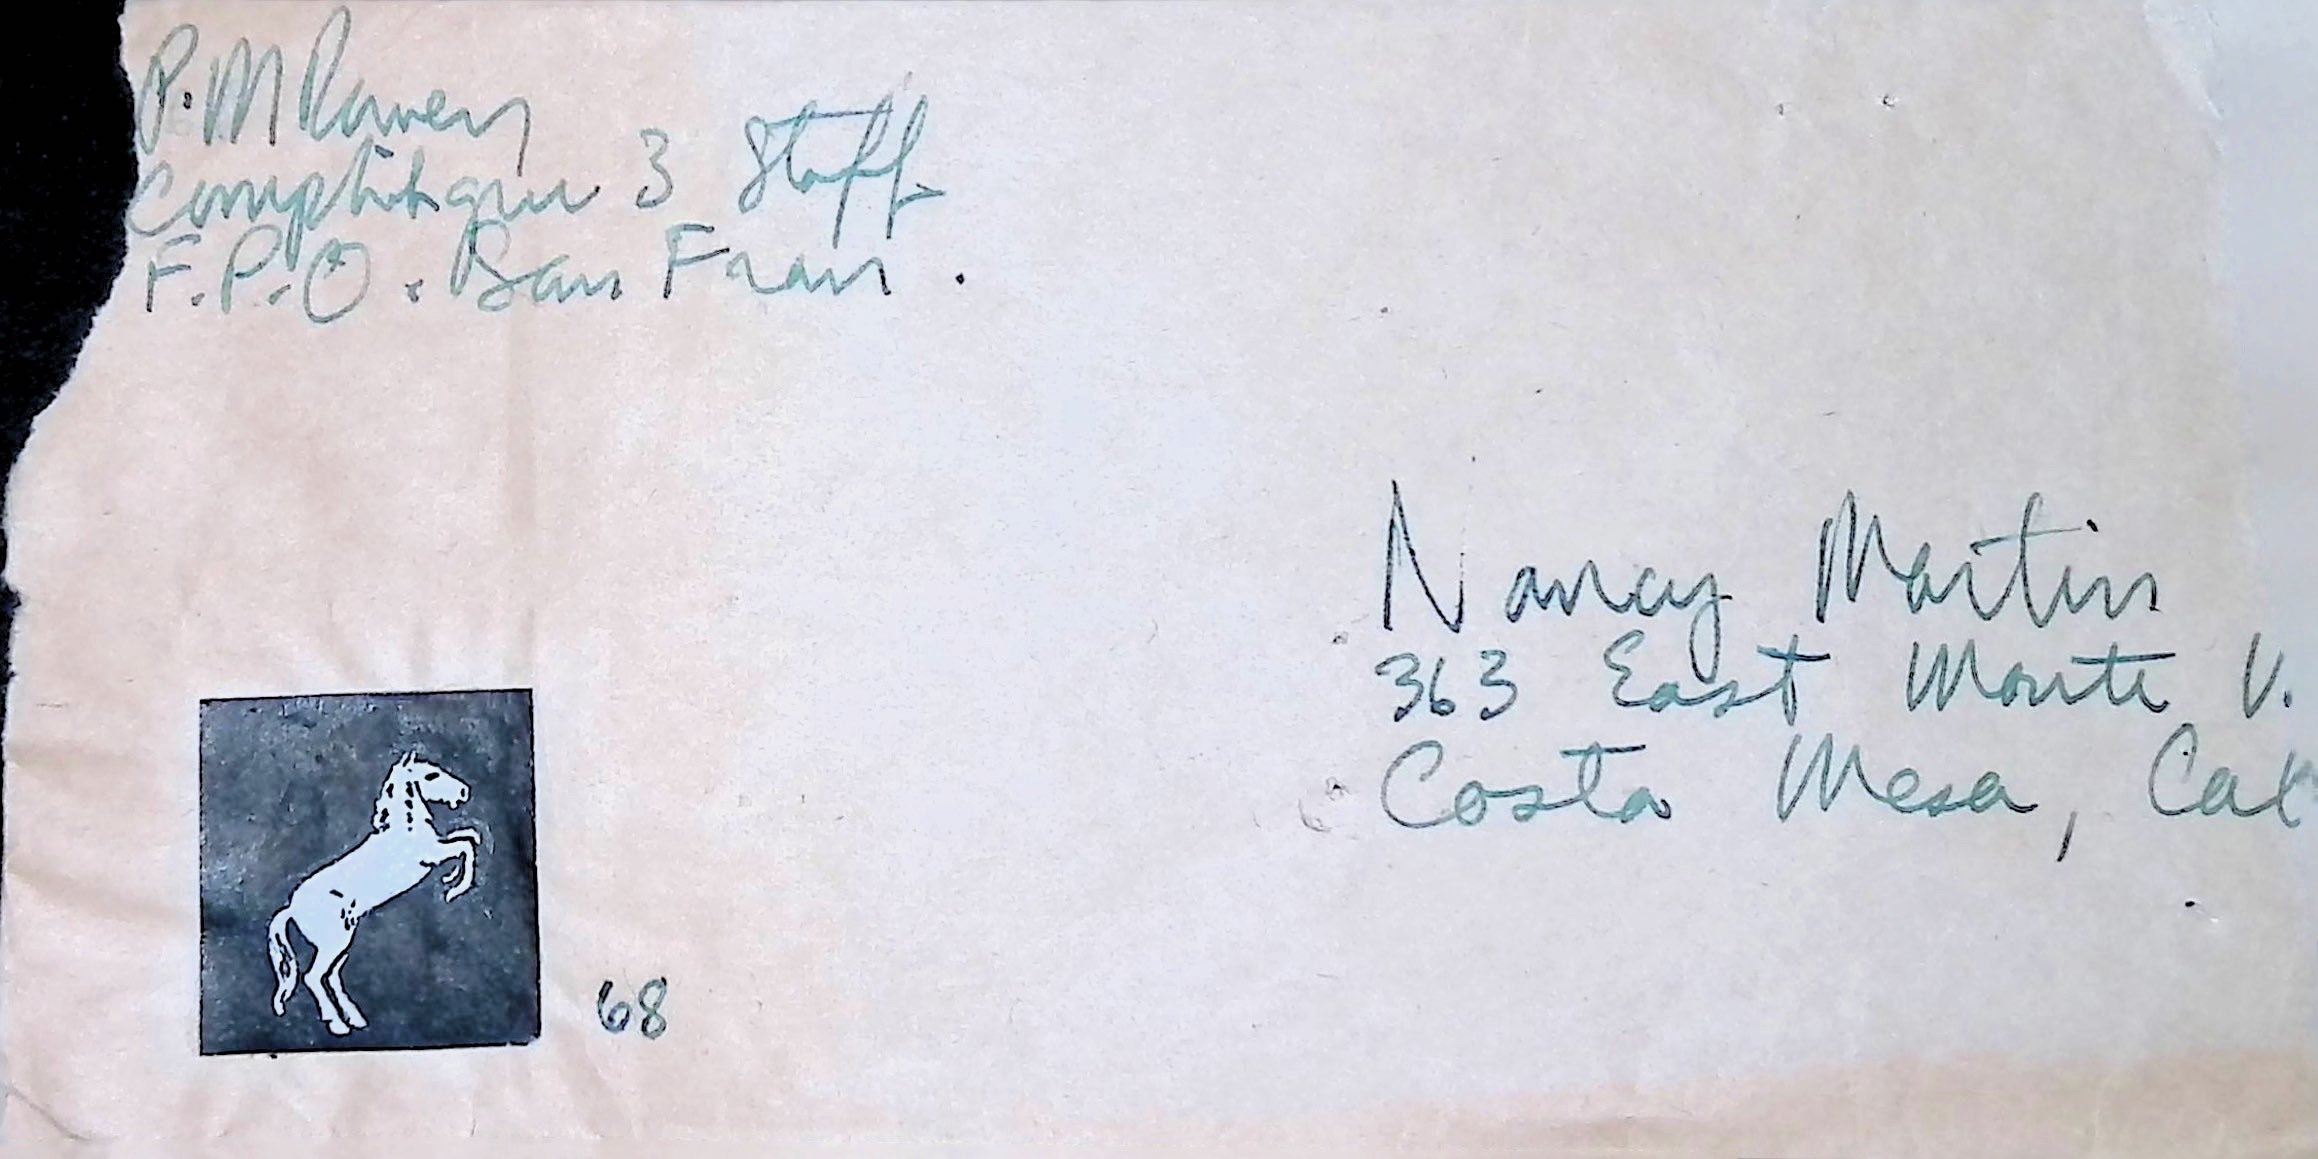 P. M Raven
Comphibgru 3 Staff
F.P.O. San Fran.
Nancy Martin
363 East Monte V.
Costa Mesa, Cal
68